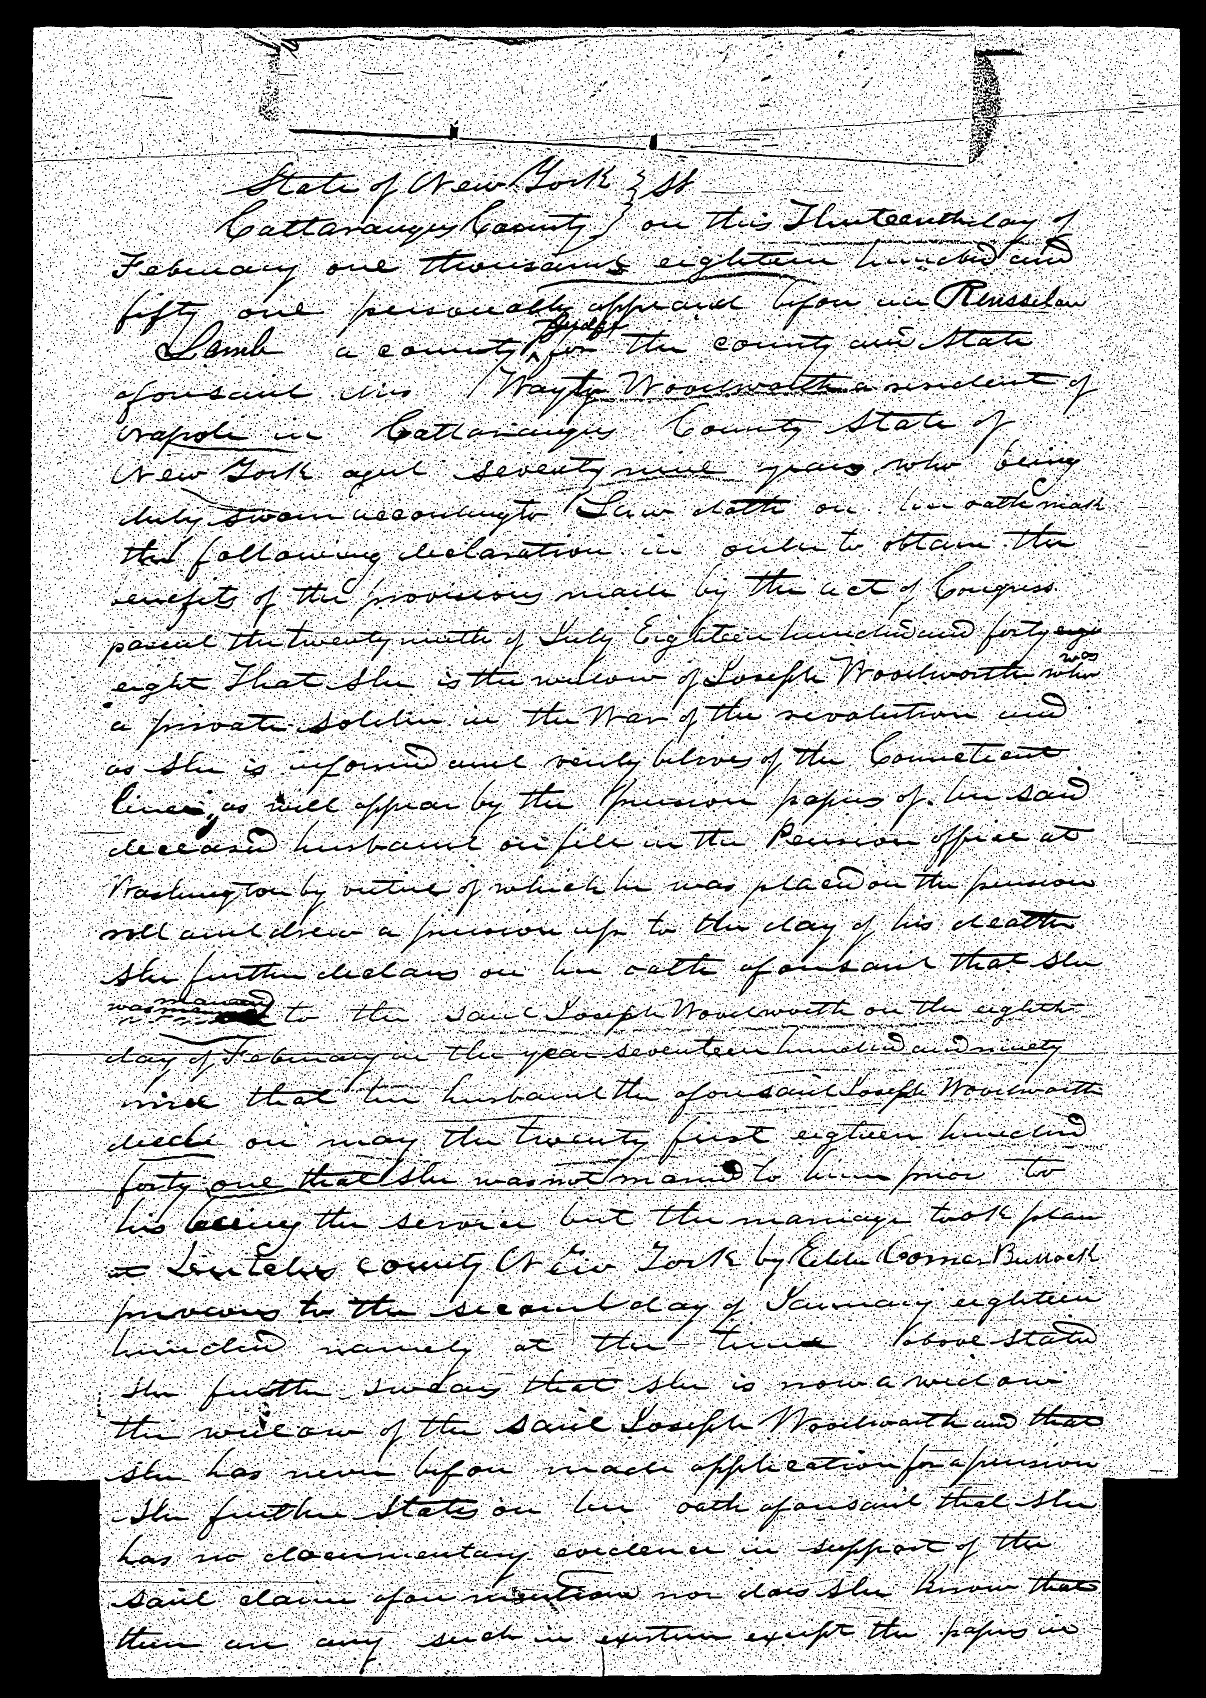 State of New York } SS
Cattaraugus County } on this Thirteenth day of
February one thousand eighteen hundred and
fifty one personally appeared before me Rensselaer
Lamb a county Judge for the county and State
aforesaid Mrs Woodworth a resident of
Napoli in Cattaraugus County State of
New York aged seventy nine years who being
duly sworn according to Law doth on her oath make
the following declaration in order to obtain the
benefits of the provisions made by the act of Congress
passed the twenty ninth of July Eighteen hundred and forty
eight That She is the widow of Joseph Woodworth who was
a private soldier in the War of the revolution and
as She is informed and verily belives of the Conneticut
line, as will appear by the pension papers of her said
deceased husband on file in the Pension office at
Washington by virtue of which he was placed on the pension
roll and drew a pension up to the day of his death
She further declares on her oath aforesaid that She
was married to the said Joseph Woodworth on the eighth
day of February in the year seventeen hundred and ninety
nine that her husband the aforesaid Joseph Woodworth
died on may the twenty first eighteen hundred
forty one that She was not married to him prior to
his leaving the service but the marriage took place
at Dutches county New York by Elder Comer Bullock
previous to the second day of January eighteen
hundred namely at the time above stated
She further swears that She is now a widow
the widow of the said Joseph Woodworth and that
She has never before made application for a pension
She further States on her oath aforesaid that She
has no documentary evidence in support of the
said claim afore mentioned nor does She know that
there are any such in existence except the papers in